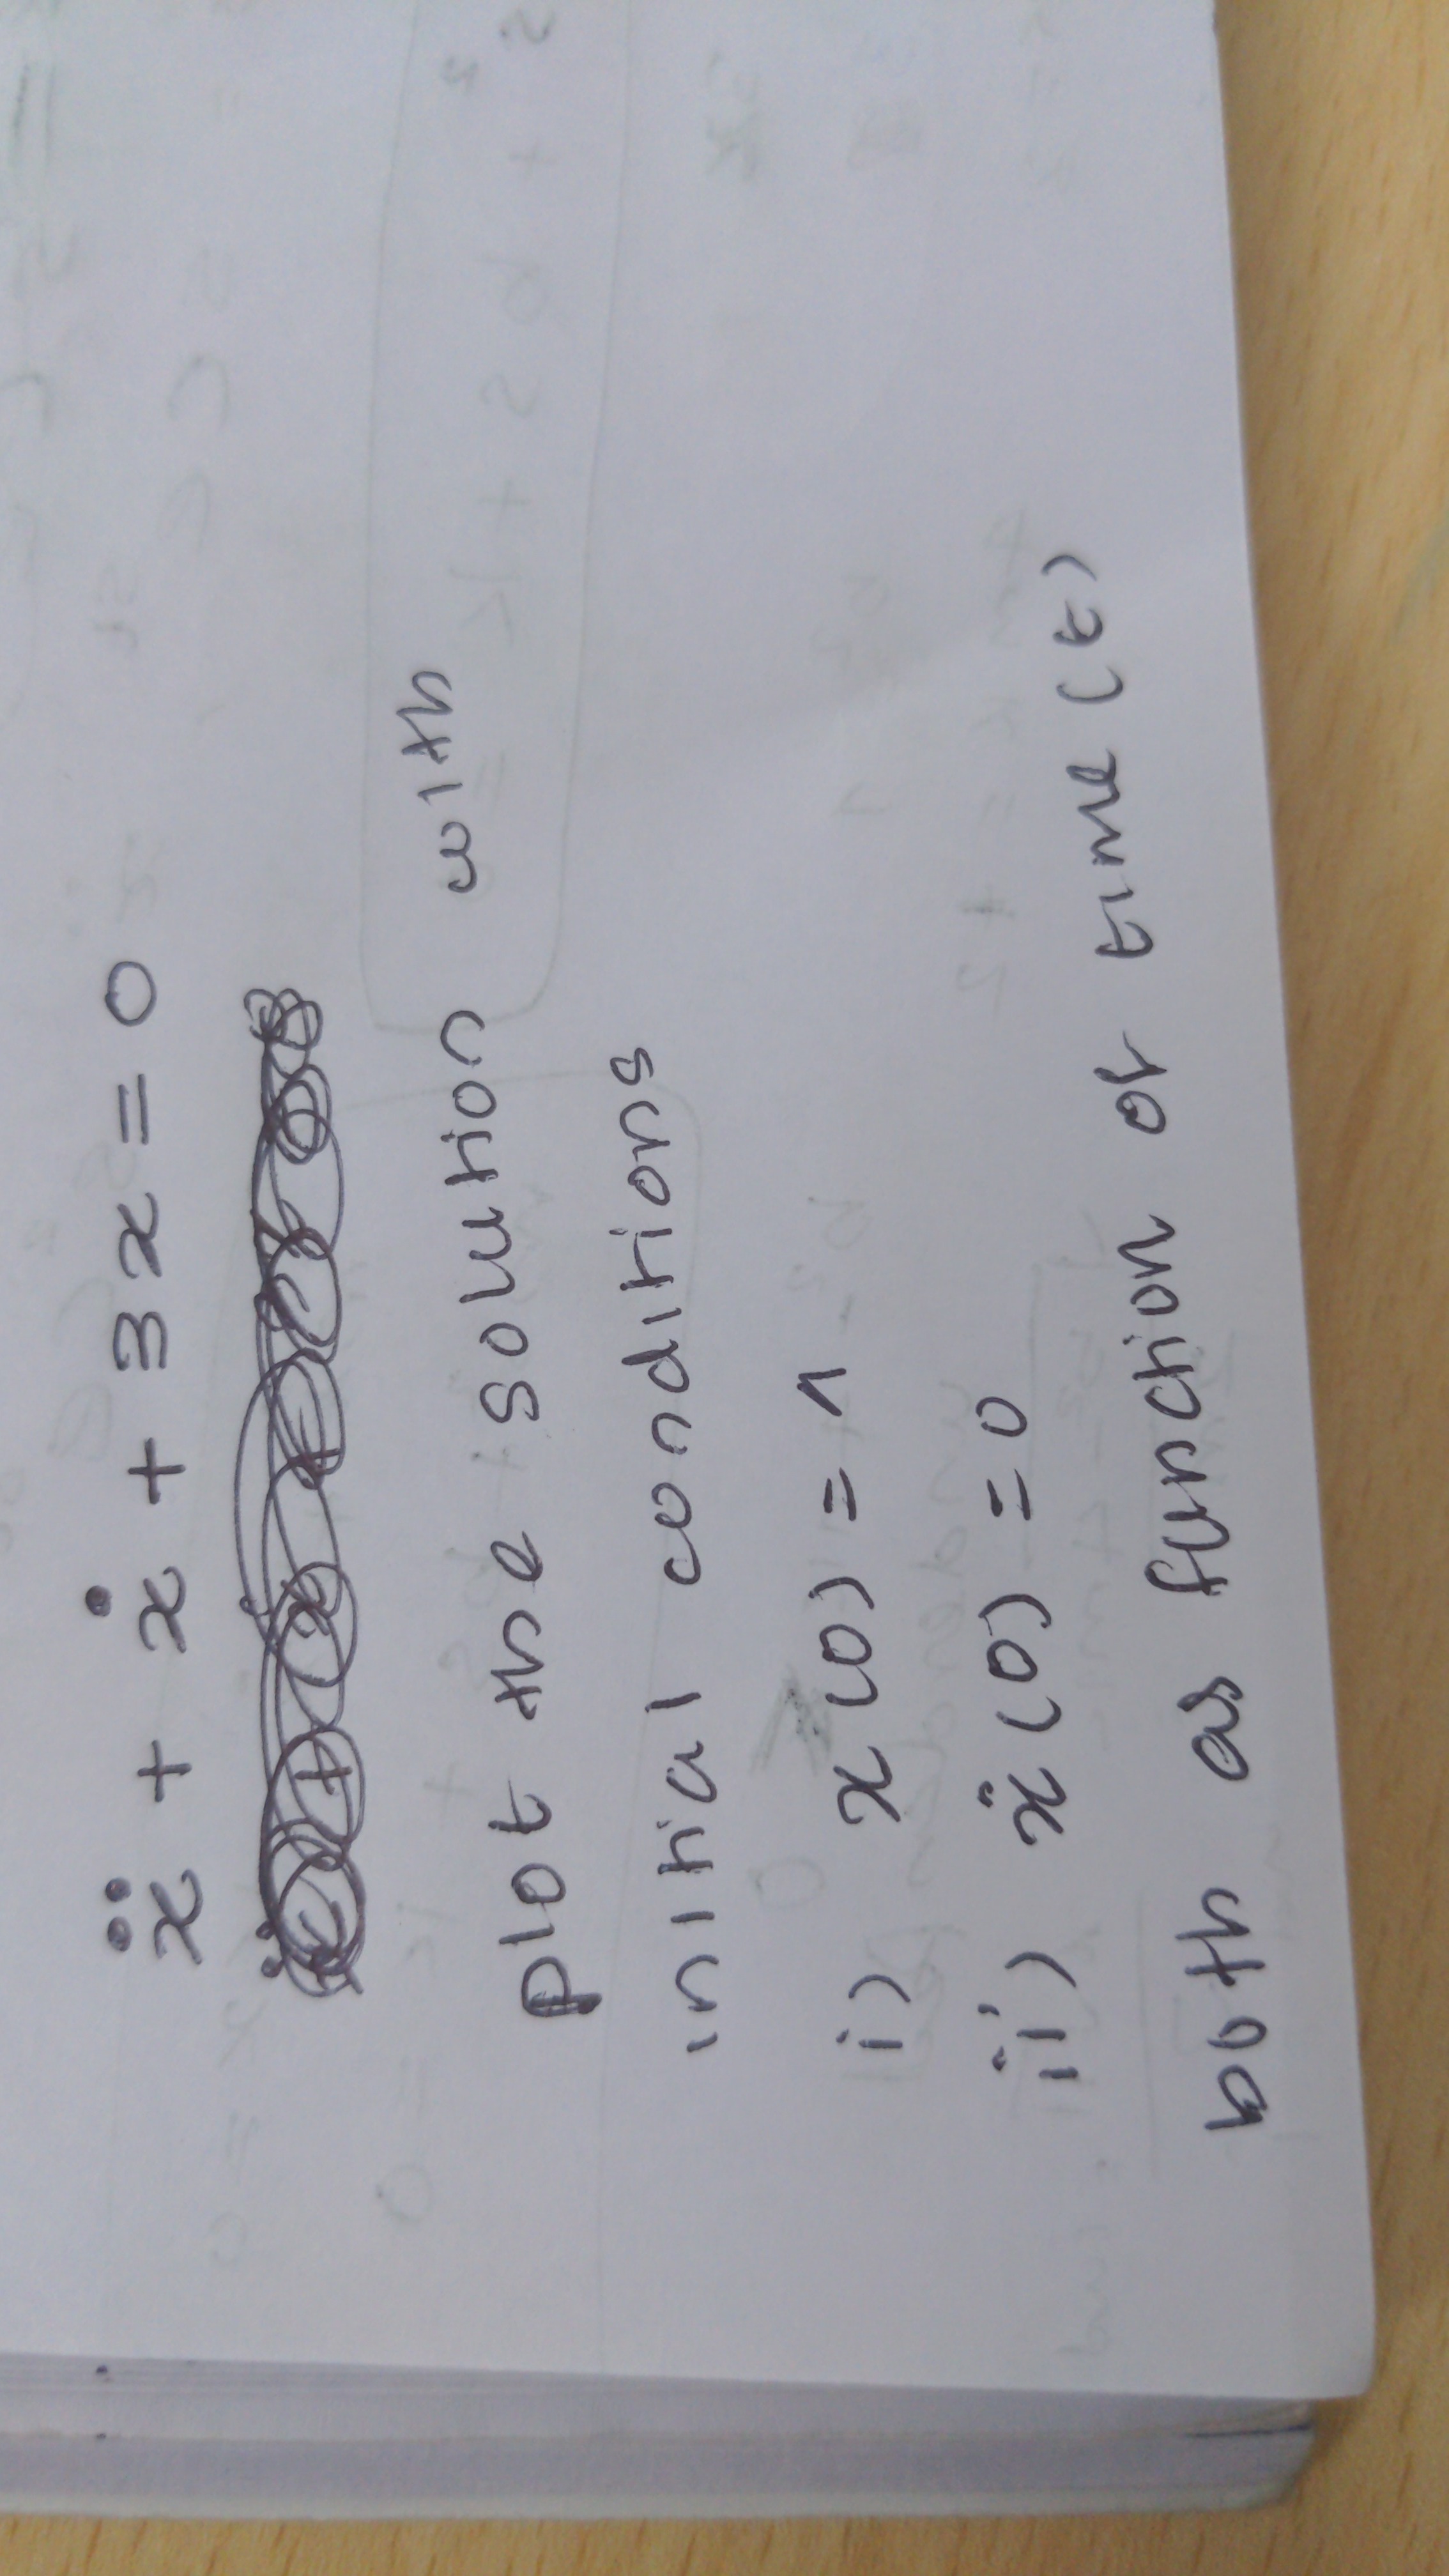 ẍ + ẋ + 3x = 0
plot the solution with
initial conditions
i) x(0) = 1
ii) ẋ(0) = 0
both as function of time (t)